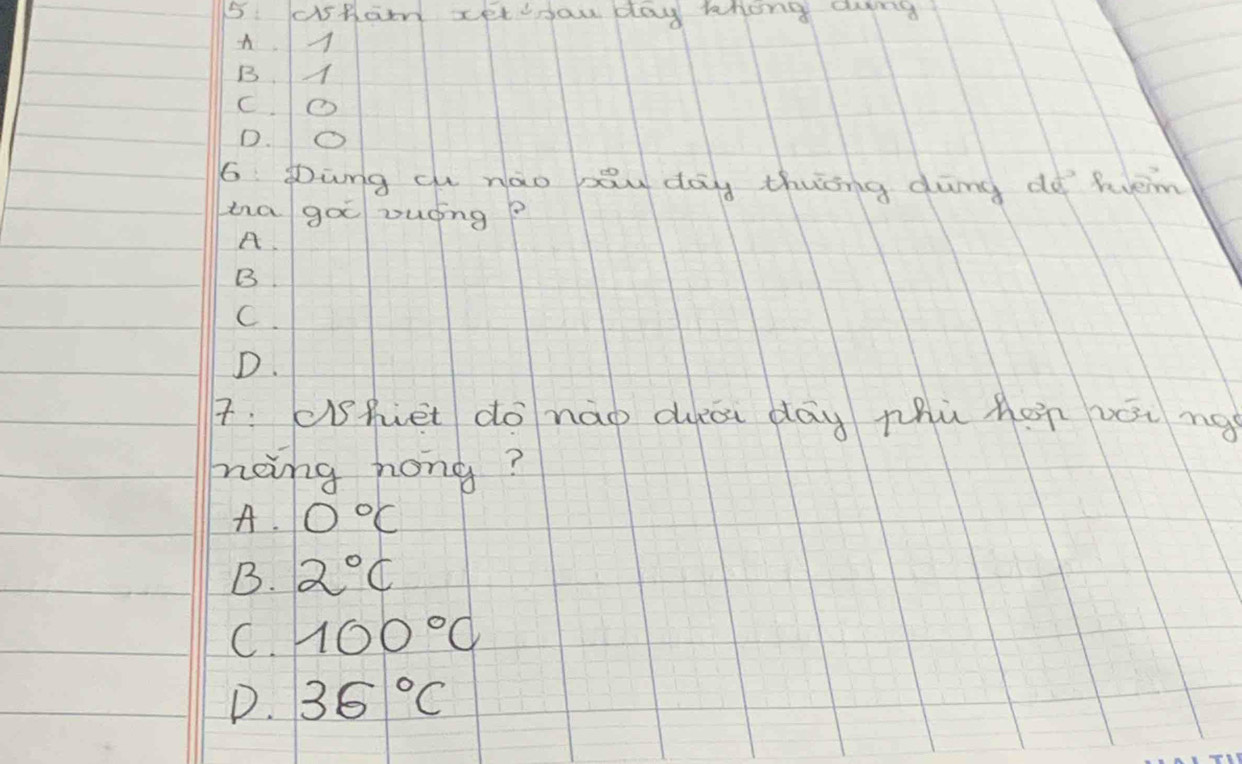 5. Nhận xét sau đây không đúng
A. 1
B. 1
C. 0
D. 0
6. Dụng cụ nào sau đây thường dùng để kiểm
tra góc vuông?
A.
B.
C.
D.
7: Nhiệt độ nào dưới đây phù hợp với
nắng nóng?
A. 0°C
B. 2°C
C. 100°C
D. 36°C